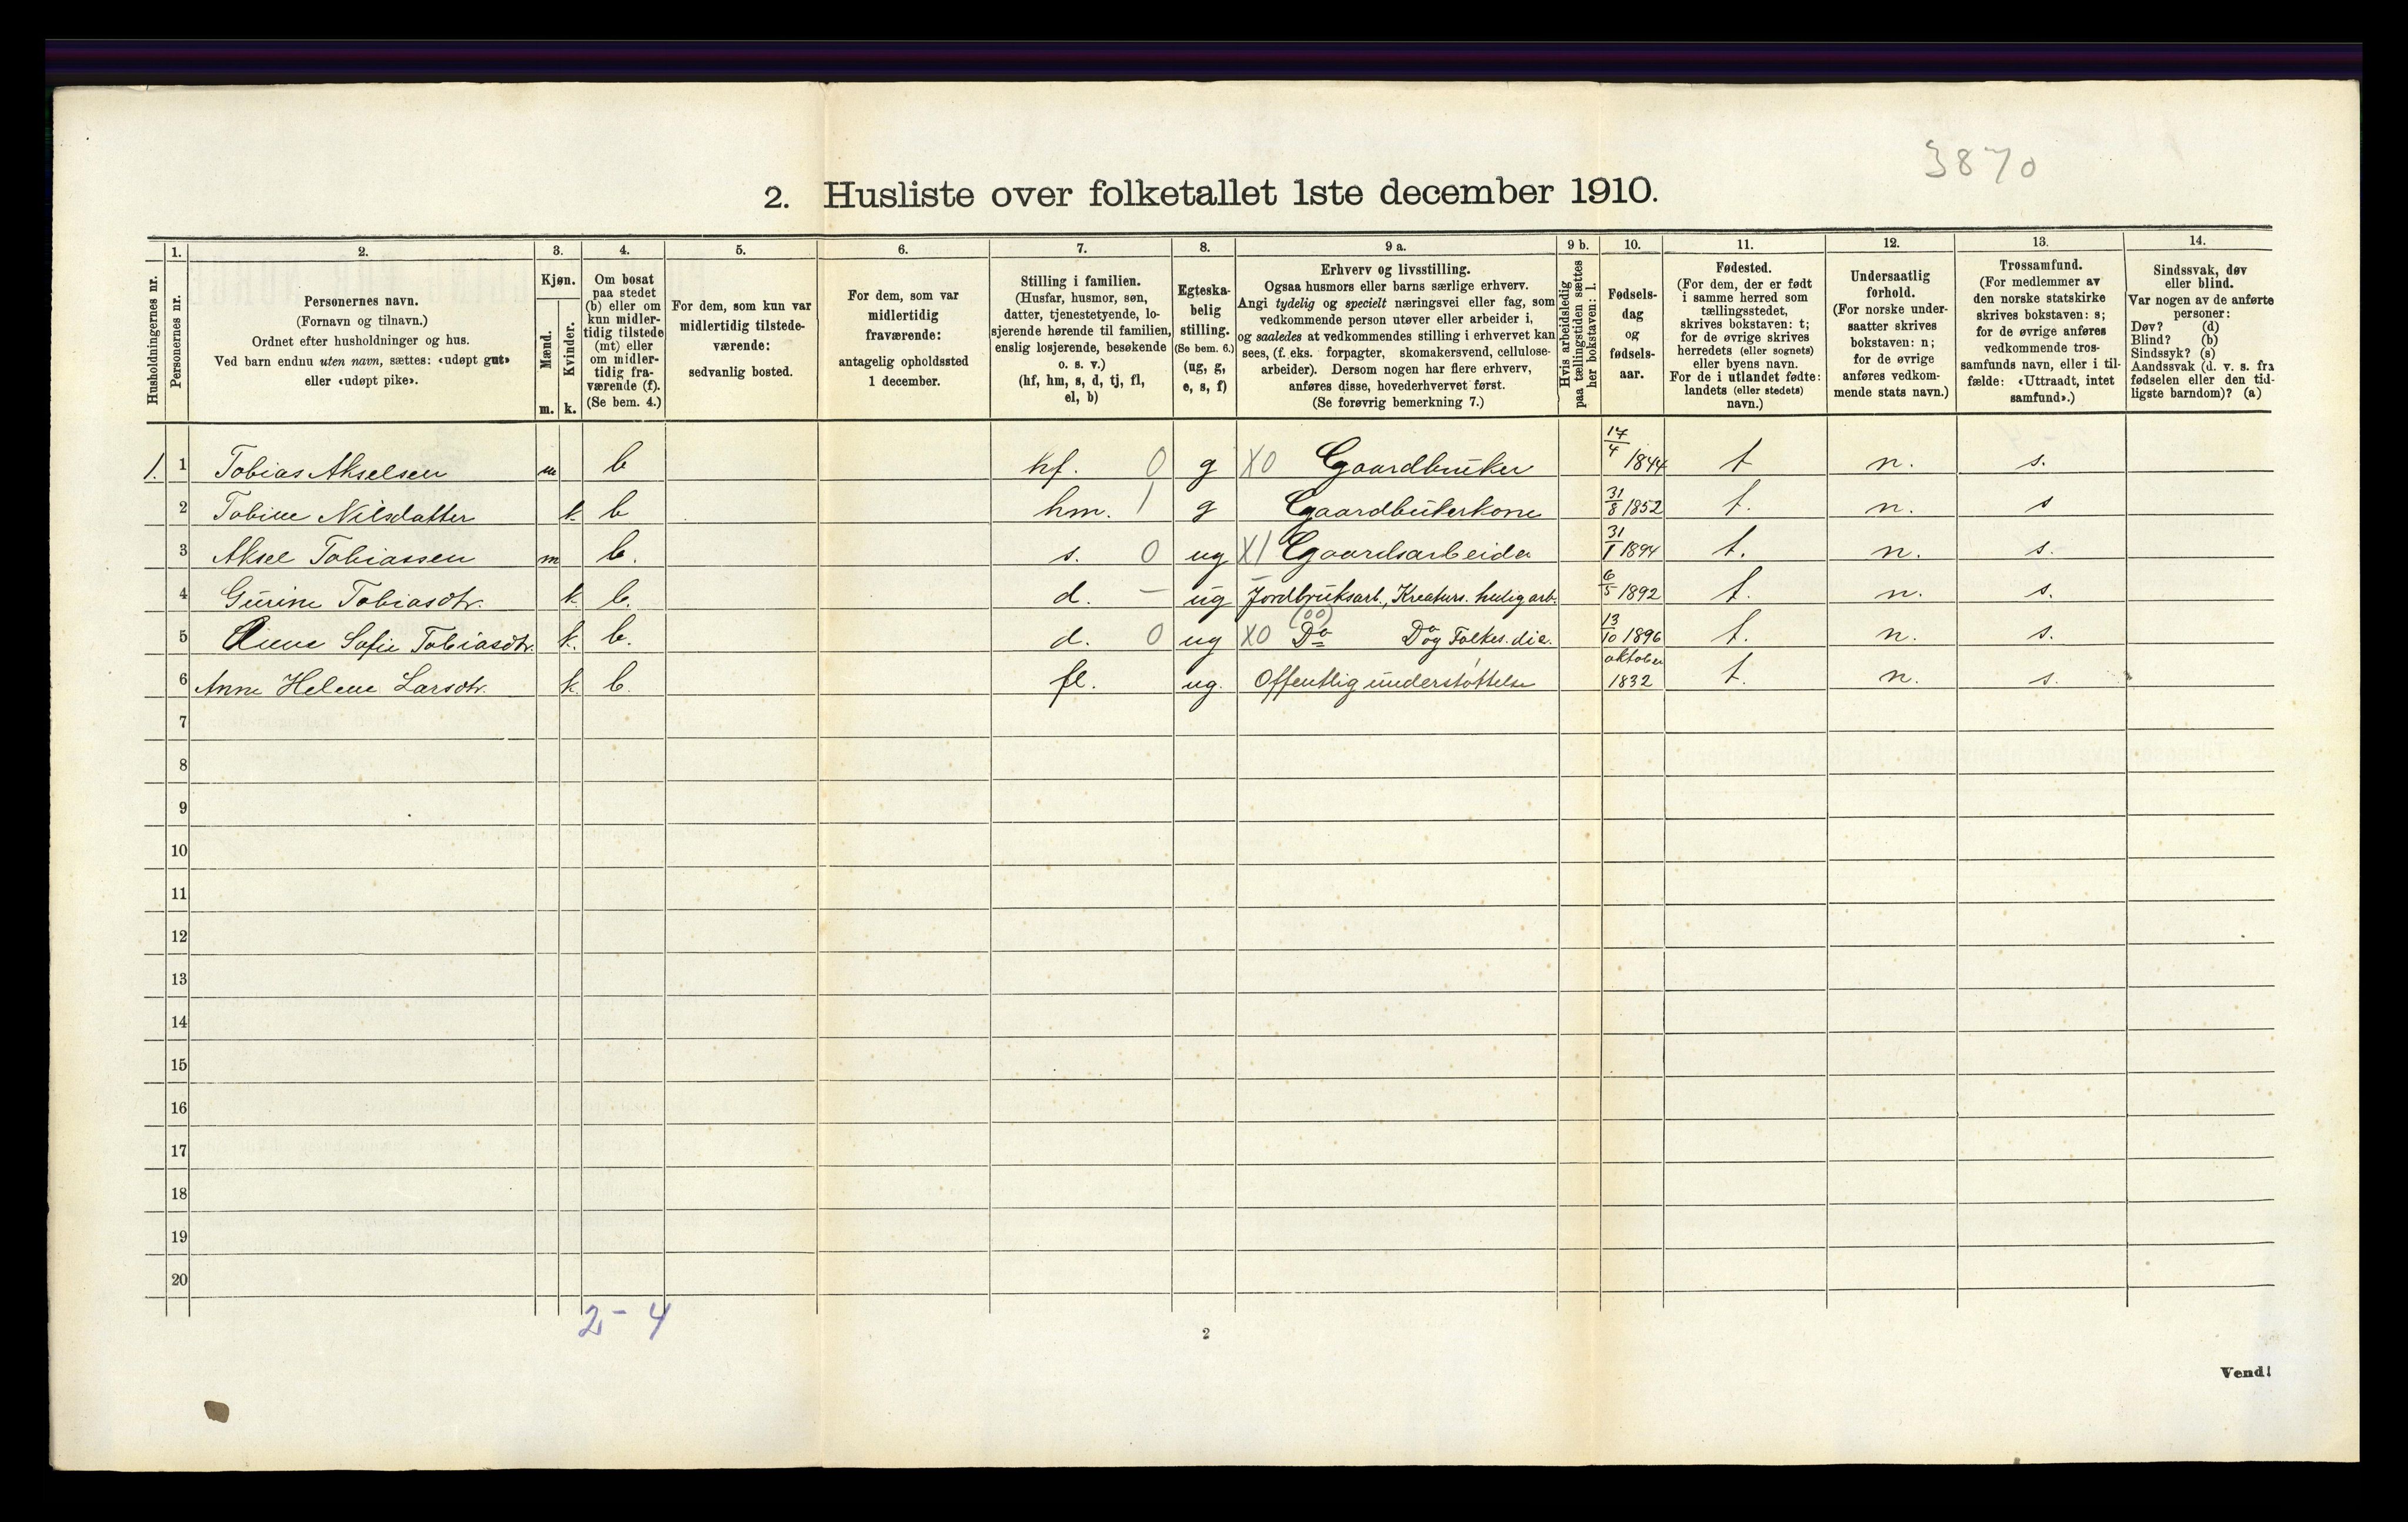 3870
2. Husliste over folketallet 1ste december 1910.
Husholdningernes nr.
1.
Personernes nr.
2.
Personernes navn.
(Fornavn og tilnavn.)
Ordnet efter husholdninger og hus.
Ved barn endnu uten navn, sættes: «udøpt gut»
eller «udøpt pike».
3.
Kjøn.
Mænd.
Kvinder.
m. k.
4.
Om bosat
paa stedet
(b) eller om
kun midler-
tidig tilstede
(mt) eller
om midler-
tidig fra-
værende (f).
(Se bem. 4.)
5.
For dem, som kun var
midlertidig tilstede-
værende:
sedvanlig bosted.
6.
For dem, som var
midlertidig
fraværende:
antagelig opholdssted
1 december.
7.
Stilling i familien.
(Husfar, husmor, søn,
datter, tjenestetyende, lo-
sjerende hørende til familien,
enslig losjerende, besøkende
o. s. v.)
(hf, hm, s, d, tj, fl,
el, b)
8.
Egteska-
belig
stilling.
(Se bem. 6.)
(ug, g,
e, s, f)
9 a.
Erhverv og livsstilling.
Ogsaa husmors eller barns særlige erhverv.
Angi tydelig og specielt næringsvei eller fag, som
vedkommende person utøver eller arbeider i,
og saaledes at vedkommendes stilling i erhvervet kan
sees, (f. eks. forpagter, skomakersvend, cellulose-
arbeider). Dersom nogen har flere erhverv,
anføres disse, hovederhvervet først.
(Se forøvrig bemerkning 7.)
9 b.
Hvis arbeidsledig
paa tællingstiden sættes
her bokstaven: l.
10.
Fødsels-
dag
og
fødsels-
aar.
11.
Fødested.
(For dem, der er født
i samme herred som
tællingsstedet,
skrives bokstaven: t;
for de øvrige skrives
herredets (eller sognets)
eller byens navn.
For de i utlandet fødte:
landets (eller stedets)
navn.)
12.
Undersaatlig
forhold.
(For norske under-
saatter skrives
bokstaven: n;
for de øvrige
anføres vedkom-
mende stats navn.)
13.
Trossamfund.
(For medlemmer av
den norske statskirke
skrives bokstaven: s;
for de øvrige anføres
vedkommende tros-
samfunds navn, eller i til-
fælde: «Uttraadt, intet
samfund».)
14.
Sindssvak, døv
eller blind.
Var nogen av de anførte
personer:
Døv? (d)
Blind? (b)
Sindssyk? (s)
Aandssvak (d. v. s. fra
fødselen eller den tid-
ligste barndom)? (a)
1. 1 Tobias Akselsen m b hf. 0 g X0 Gaardbruker 17/4 1844 t n. s.
2 Tobine Nilsdatter k. b hm. 1 g Gaardbrukerkone 31/8 1852 t. n. s
3 Aksel Tobiassen m b. s. 0 ug X1 Gaardsarbeider 31/1 1894 t. n. s.
4 Gurine Tobiasdtr. k. b. d. – ug Jordbruksarb., Kreaturs. huslig arb. 6/5 1892 t. n. s.
5 Sofie Tobiasdtr. k. b. d. 0 ug X0 (00) Do Do og Folkes. 13/10 1896 t. n. s.
6 Anne Helene Larsdtr. k. b. fl. ug. Offentlig understøttelse oktober 1832 t. n. s.
7
8
9
10
11
12
13
14
15
16
17
18
19
20
2 – 4
2
Vend!